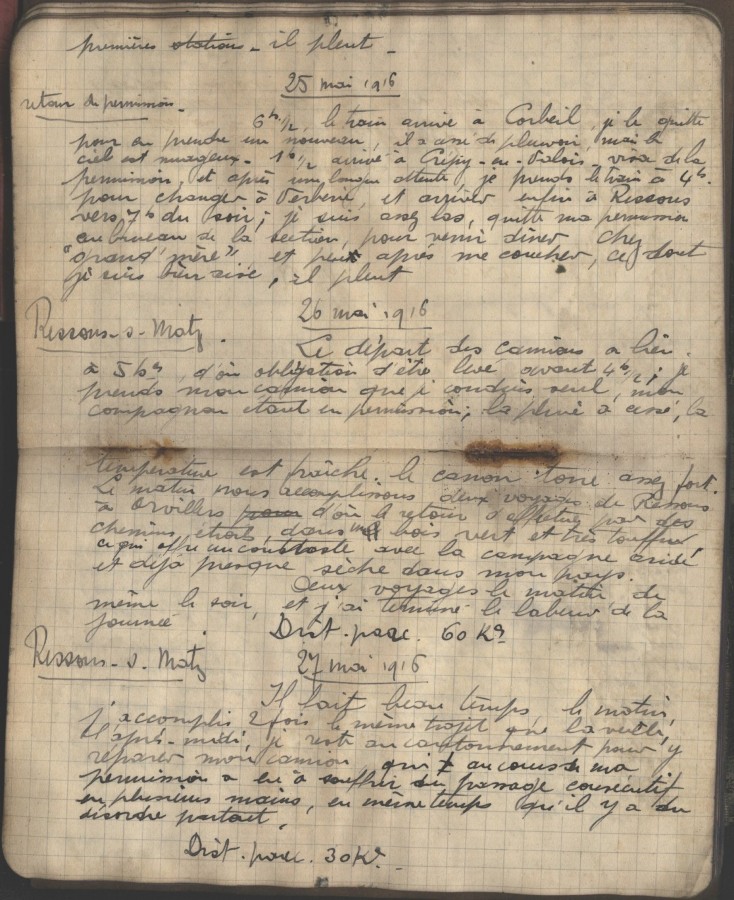 premières stations - il pleut -
25 mai 1916
retour de permission -
6h 1/2, le train arrive à Corbeil, je le quitte
pour en prendre un nouveau, il a cessé de pleuvoir, mais le
ciel est nuageux - 1h 1/2 arrivé à Crépy-en-Valois, visa de la
permission, et après une longue attente, je prends le train à 4h.
pour changer à Verberie, et arriver enfin à Ressons
vers 7h du soir; je suis assez las, quitte ma permission
au bureau de la section, pour venir dîner chez
"grand'mère", et puis après me coucher, ce dont
je suis bien aise, il pleut
26 mai 1916
Ressons-s-Matz.
Le départ des camions a lieu
à 5h, d'où obligation d'être levé avant 4h 1/2; je
prends mon camion que je conduis seul, mon
compagnon étant en permission; la pluie a cessé, la
température est fraîche. le canon tone assez fort.
Le matin nous accomplissons deux voyages de Ressons
à Orvillers pour d'où le retour s'effectue par des
chemins étroits, dans un bois vert et très touffu
ce qui offre un contraste avec la campagne aride
et déjà presque sèche dans mon pays.
Deux voyages le matin, de
même le soir, et j'ai terminé le labeur de la
journée.
Dist. parc. 60 Km
Ressons-s-Matz
27 mai 1916
Il fait beau temps le matin,
j'accomplis 2 fois le même trajet que la veille,
l'après-midi, je reste au cantonnement pour y
réparer mon camion, qui au cours de ma
permission a eu à souffrir du passage consécutif
en plusieurs mains, en même temps qu'il y a du
désordre partout.
Dist. parc. 30 Km.